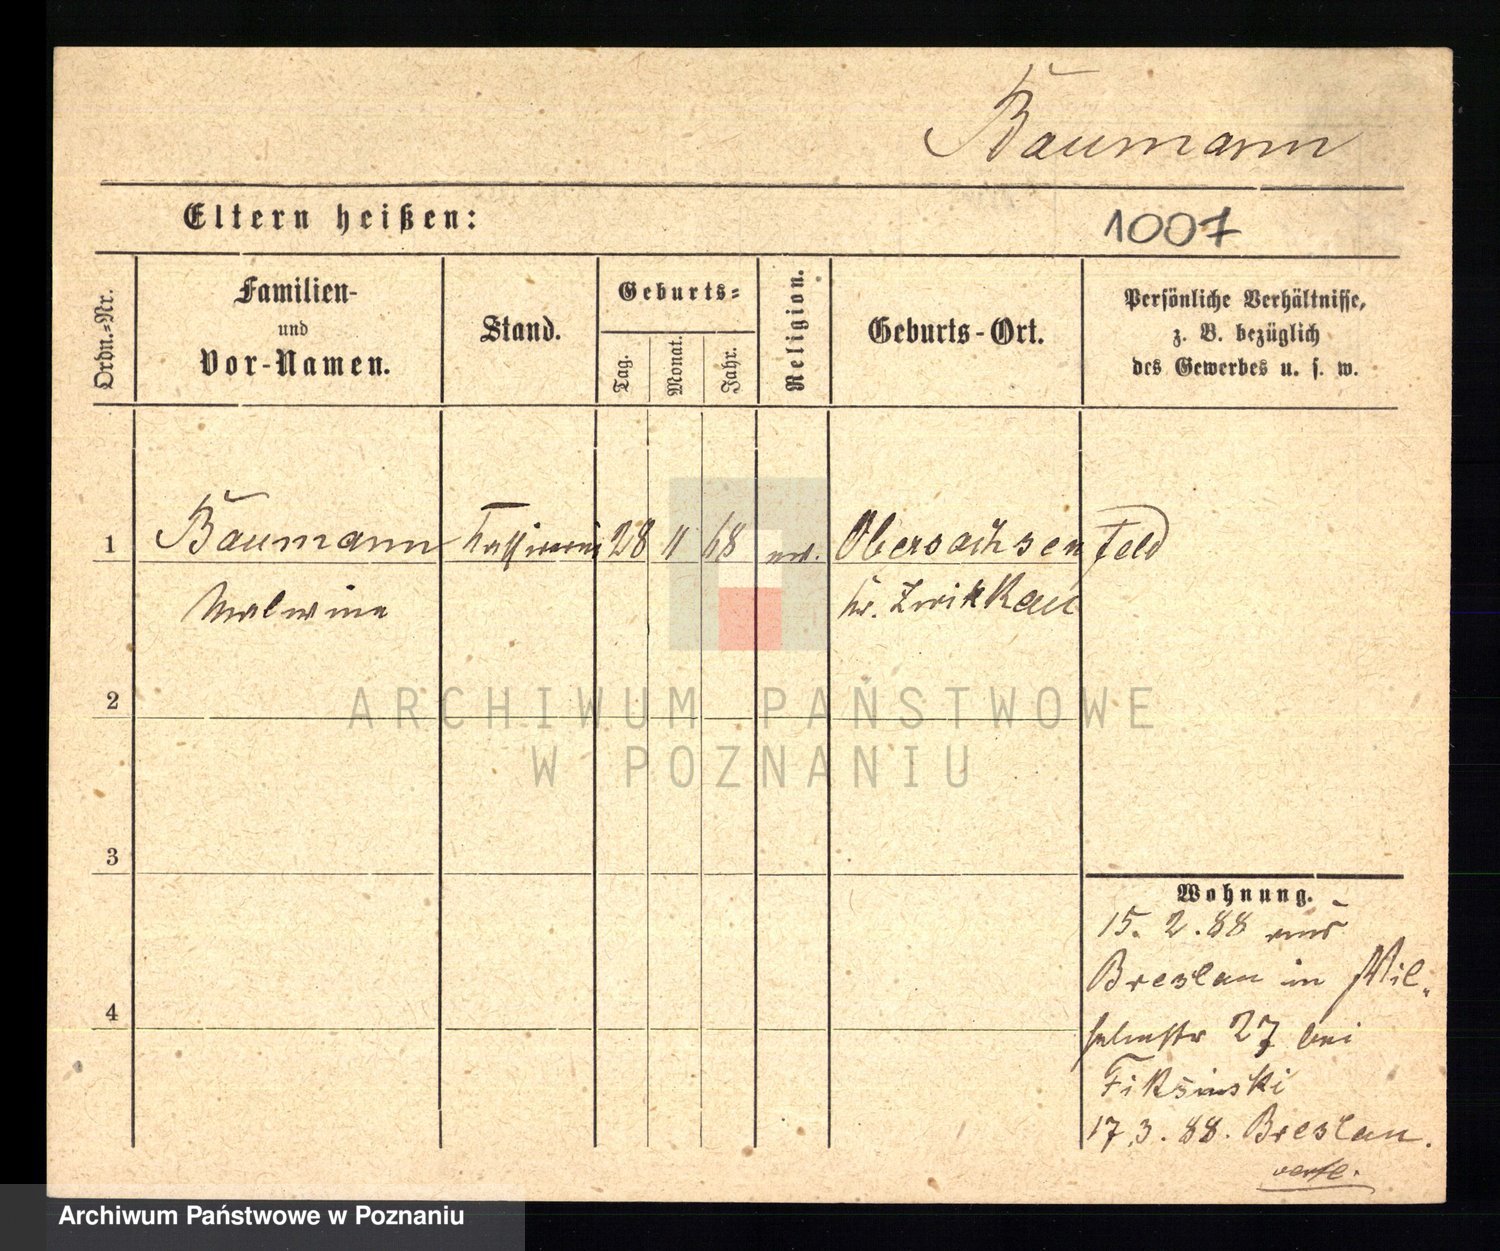 Baumann
Eltern heißen:
1007
Ordn.-Nr.
Familien-
und
Vor-Namen.
Stand.
Geburts-
Tag.
Monat.
Jahr.
Religion.
Geburts-Ort.
Persönliche Verhältnisse,
z. B. bezüglich
des Gewerbes u. s. w.
1 Baumann Kassirerin 28 11 68 Obersachsenfeld
Malwine Kr. Zwikkau
2
3
4
Wohnung.
15. 2. 88 aus
Breslau in Wil-
helmstr 27 bei
Fiksinski
17. 3. 88. Breslau.
ARCHIWUM PAŃSTWOWE
W POZNANIU
Archiwum Państwowe w Poznaniu